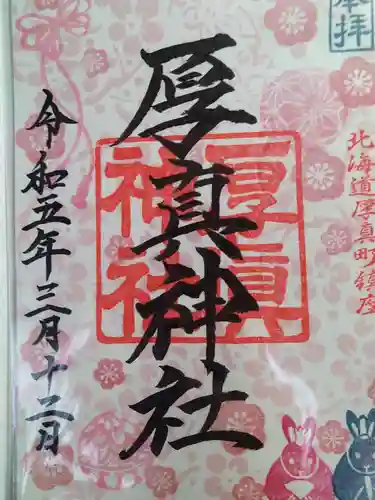 奉拝
北海道厚真町鎮座
厚真神社
厚真神社
令和五年三月十二日